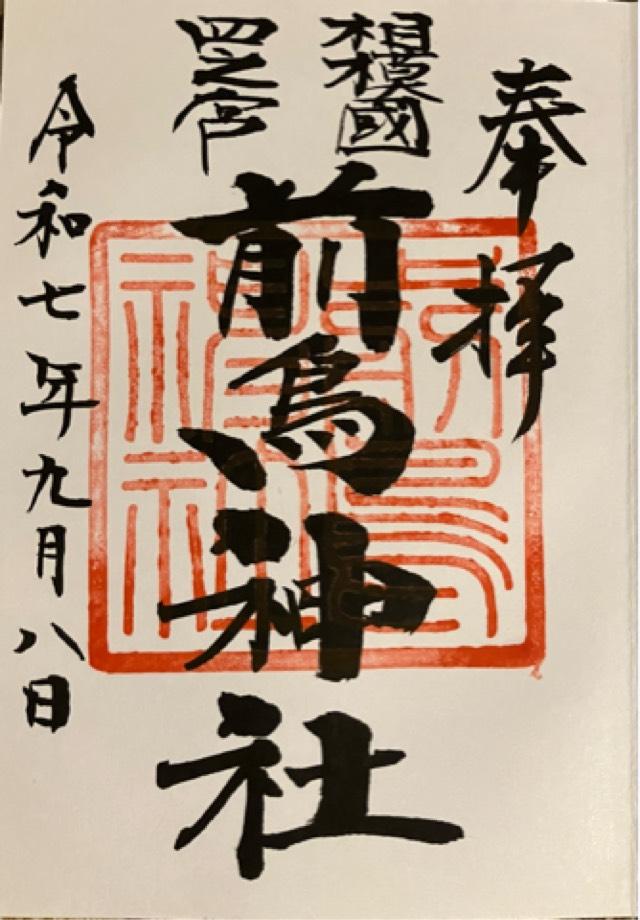 奉拝
相模國
四之宮
前鳥神社
令和七年九月八日